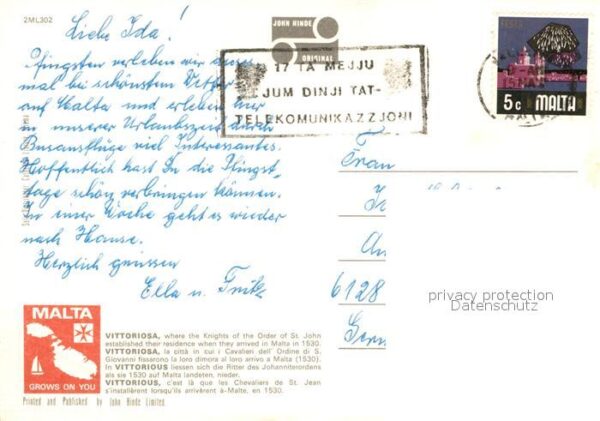 2ML302
JOHN HINDE
ORIGINAL
Liebe Ida!
Pfingsten verleben wir
mal bei schönstem Wetter
auf Malta und erleben hier
in unserer Urlaubszeit durch
Busausflüge viel Interessantes.
Hoffentlich hast Du die Pfingst-
tage schön verbringen können.
In einer Woche geht es wieder
nach Hause.
Herzlich grüssen
Ella u. Fritz
17 TA MEJJU
JUM DINJI TAT-
TELEKOMUNIKAZZJONI
5c MALTA
Frau
6128
privacy protection
Datenschutz
MALTA
GROWS ON YOU
VITTORIOSA, where the Knights of the Order of St. John
established their residence when they arrived in Malta in 1530.
VITTORIOSA, la città in cui i Cavalieri dell' Ordine di S.
Giovanni fissarono la loro dimora al loro arrivo a Malta (1530).
In VITTORIOUS liessen sich die Ritter des Johanniterordens
als sie 1530 auf Malta landeten, nieder.
VITTORIOUS, c'est là que les Chevaliers de St. Jean
s'installèrent lorsqu'ils arrivèrent à Malte, en 1530.
Printed and Published by John Hinde Limited.